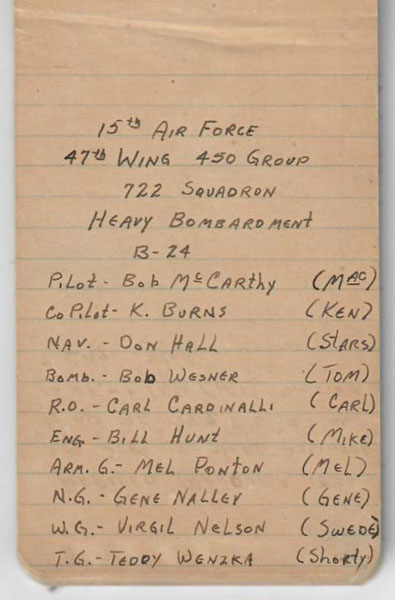 15th AIR FORCE
47th WING 450 GROUP
722 SQUADRON
HEAVY BOMBARDMENT
B-24
PiLot - Bob McCarthy (MAC)
Co PiLot - K. BURNS (KEN)
NAV. - DON HALL (StARS)
BOMB. - Bob WESNER (TOM)
R.O. - CARL CARDINALLI (CARL)
ENG. - BILL HUNT (MIKE)
ARM. G. - MEL PONTON (MEL)
N.G. - GENE NALLEY (GENE)
W.G. - VIRGIL NELSON (SWEDE)
T.G. - TEDDY WENZKA (Shorty)